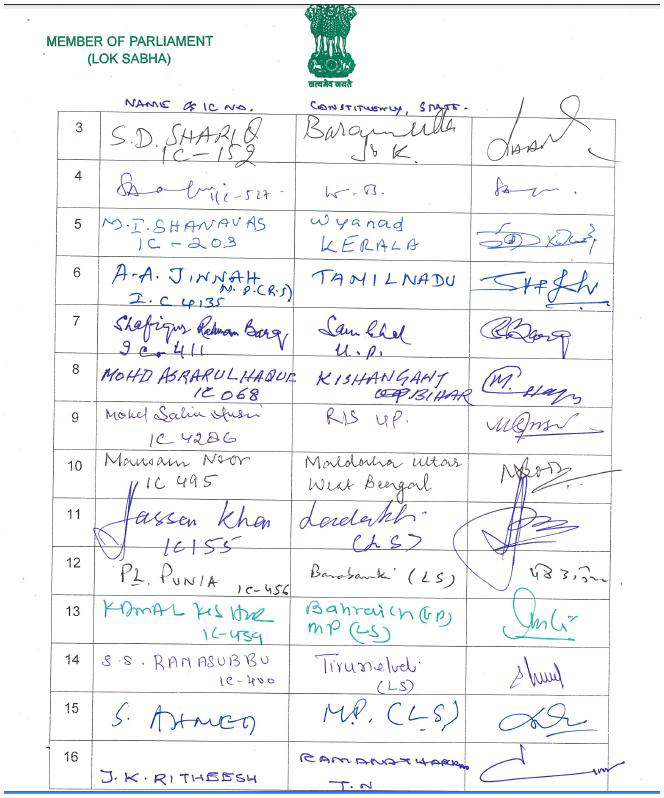 MEMBER OF PARLIAMENT
(LOK SABHA)
सत्यमेव जयते
NAME & IC NO. CONSTITUENCY, STATE.
3 S.D. SHARIQ Baramulla
IC-152 J&K.
4 IC-527 W.B.
5 M.I. SHANAVAS Wyanad
IC-203 KERALA
6 A.A. JINNAH TAMILNADU
M.P.(R.S)
I.C 4135
7 Shafiqur Rahman Barq
IC-411 U.P.
8 MOHD ASRARUL HAQUE KISHANGANJ
IC 068 BIHAR
9 Mohd RJS UP.
IC 4286
10 Mausam Noor Maldaha Uttar
IC 495 West Bengal
11 Hassan Khan Ladakh
IC155 (LS)
12 PL. PUNIA Barabanki (LS)
IC-456
13 KAMAL KISHOR Bahraich (UP)
IC-439 MP (LS)
14 S.S. RAMASUBBU Tirunelveli
IC-400 (LS)
15 S. AHMED M.P. (LS)
16 J.K. RITHEESH RAMANATHAPURAM
T.N